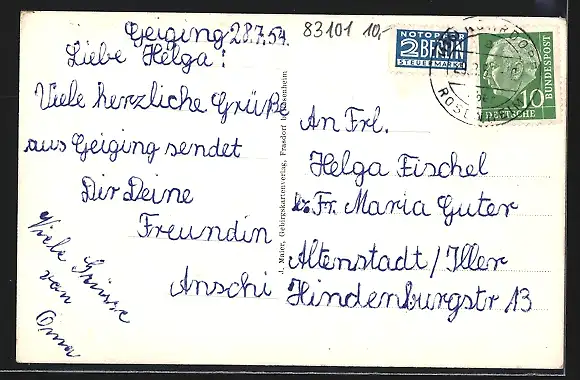 Geiging 28.7.54.
83101 10,-
Liebe Helga!
Viele herzliche Grüße
aus Geiging sendet
Dir Deine
Freundin
Anschi
Viele Grüsse
von
Oma
J. Maier, Gebirgskartenverlag, Frasdorf b. Rosenheim
NOTOPFER
2 BERLIN
STEUERMARKE
DEUTSCHE
BUNDESPOST
10
An Frl.
Helga Fischel
bei Fr. Maria Guter
Altenstadt/Iller
Hindenburgstr 13